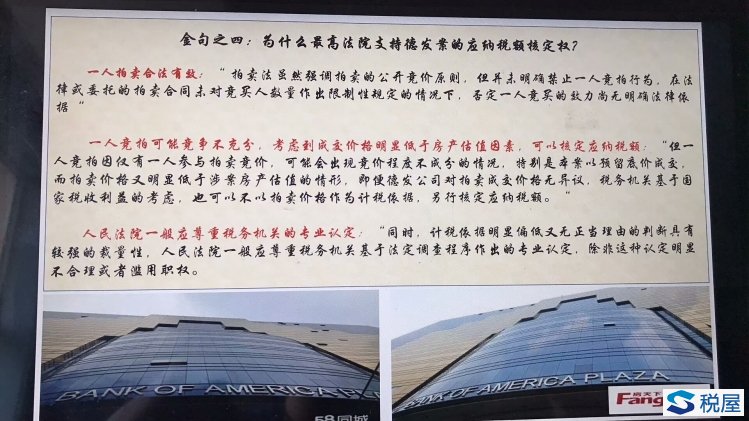 金句之四：为什么最高法院支持德发案的应纳税额核定权？
一人拍卖合法有效：“拍卖法虽然强调拍卖的公开竞价原则，但并未明确禁止一人竞拍行为，在法
律或委托的拍卖合同未对竞买人数量作出限制性规定的情况下，否定一人竞买的效力尚无明确法律依
据”
一人竞拍可能竞争不充分，考虑到成交价格明显低于房产估值因素，可以核定应纳税额：“但一
人竞拍因仅有一人参与拍卖竞价，可能会出现竞价程度不成分的情况，特别是本案以预留底价成交，
而拍卖价格又明显低于涉案房产估值的情形，即便德发公司对拍卖成交价格无异议，税务机关基于国
家税收利益的考虑，也可以不以拍卖价格作为计税依据，另行核定应纳税额。”
人民法院一般应尊重税务机关的专业认定：“同时，计税依据明显偏低又无正当理由的判断具有
较强的裁量性，人民法院一般应尊重税务机关基于法定调查程序作出的专业认定，除非这种认定明显
不合理或者滥用职权。
BANK OF AMERICA
58同城
BANK OF AMERICA PLAZA
房天下
Fang
税屋